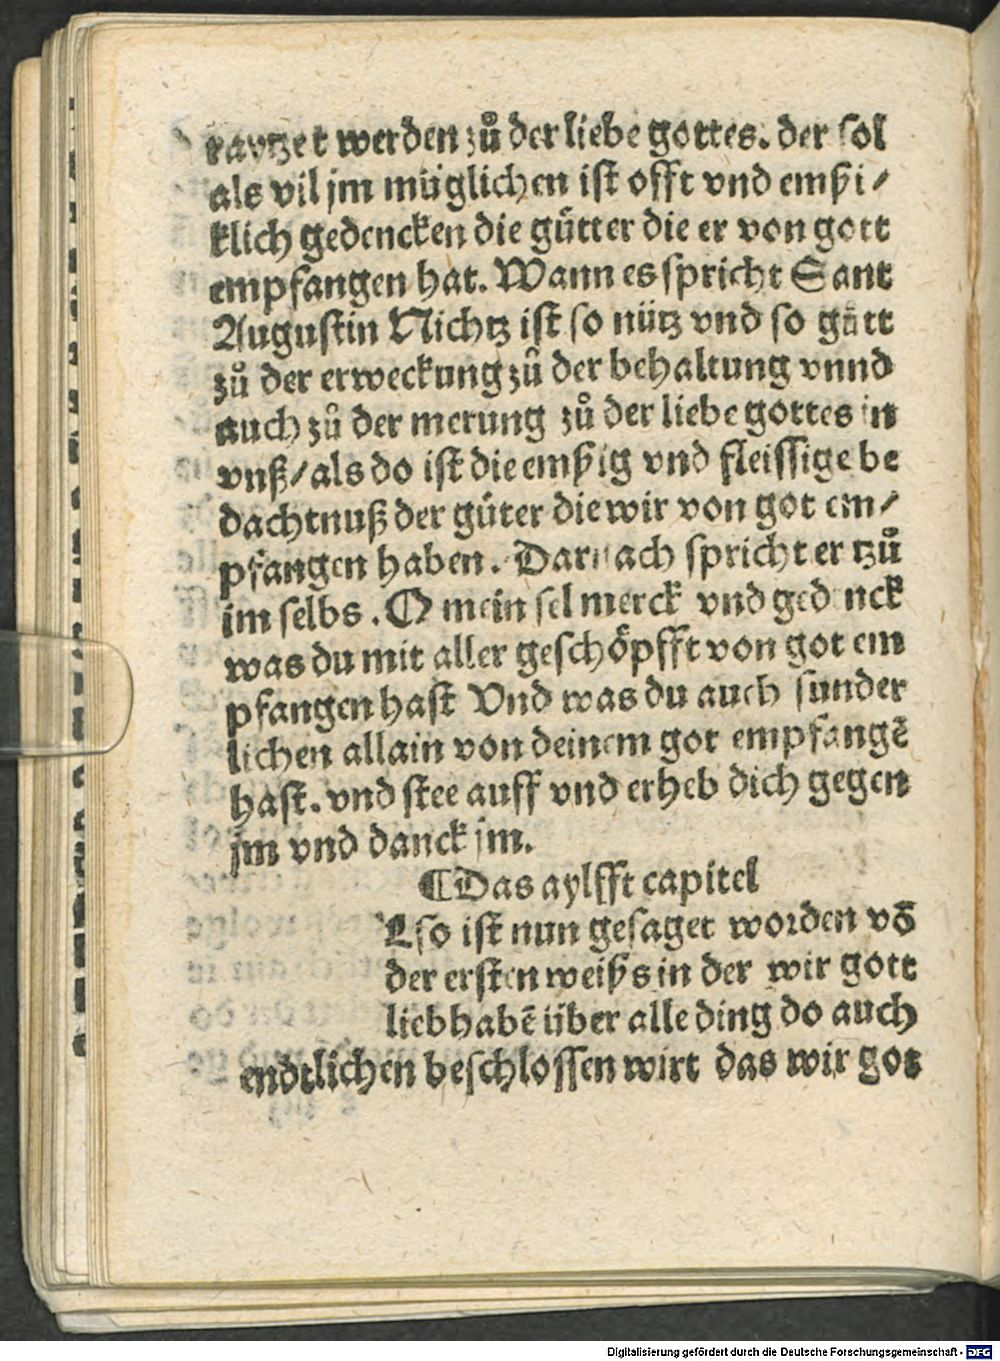 raytzet werden zů der liebe gottes. der sol
als vil jm müglichen ist offt vnd emßi/
klich gedencken die gütter die er von gott
empfangen hat. Wann es spricht Sant
Augustin Nichtz ist so nütz vnd so gůtt
zů der erweckung zů der behaltung vnnd
auch zů der merung zů der liebe gottes in
vnß/als do ist die emßig vnd fleissige be
dachtnuß der güter die wir von got em/
pfangen haben. Darnach spricht er tzů
im selbs. O mein sel merck vnd gedenck
was du mit aller geschöpfft von got em
pfangen hast Vnd was du auch sunder
lichen allain von deinem got empfangē
hast. vnd stee auff vnd erheb dich gegen
jm vnd danck jm.
¶Das aylfft capitel
Also ist nun gesaget worden vō
der ersten weißs in der wir gott
liebhabē über alle ding do auch
endtlichen beschlossen wirt das wir got
Digitalisierung gefördert durch die Deutsche Forschungsgemeinschaft - DFG